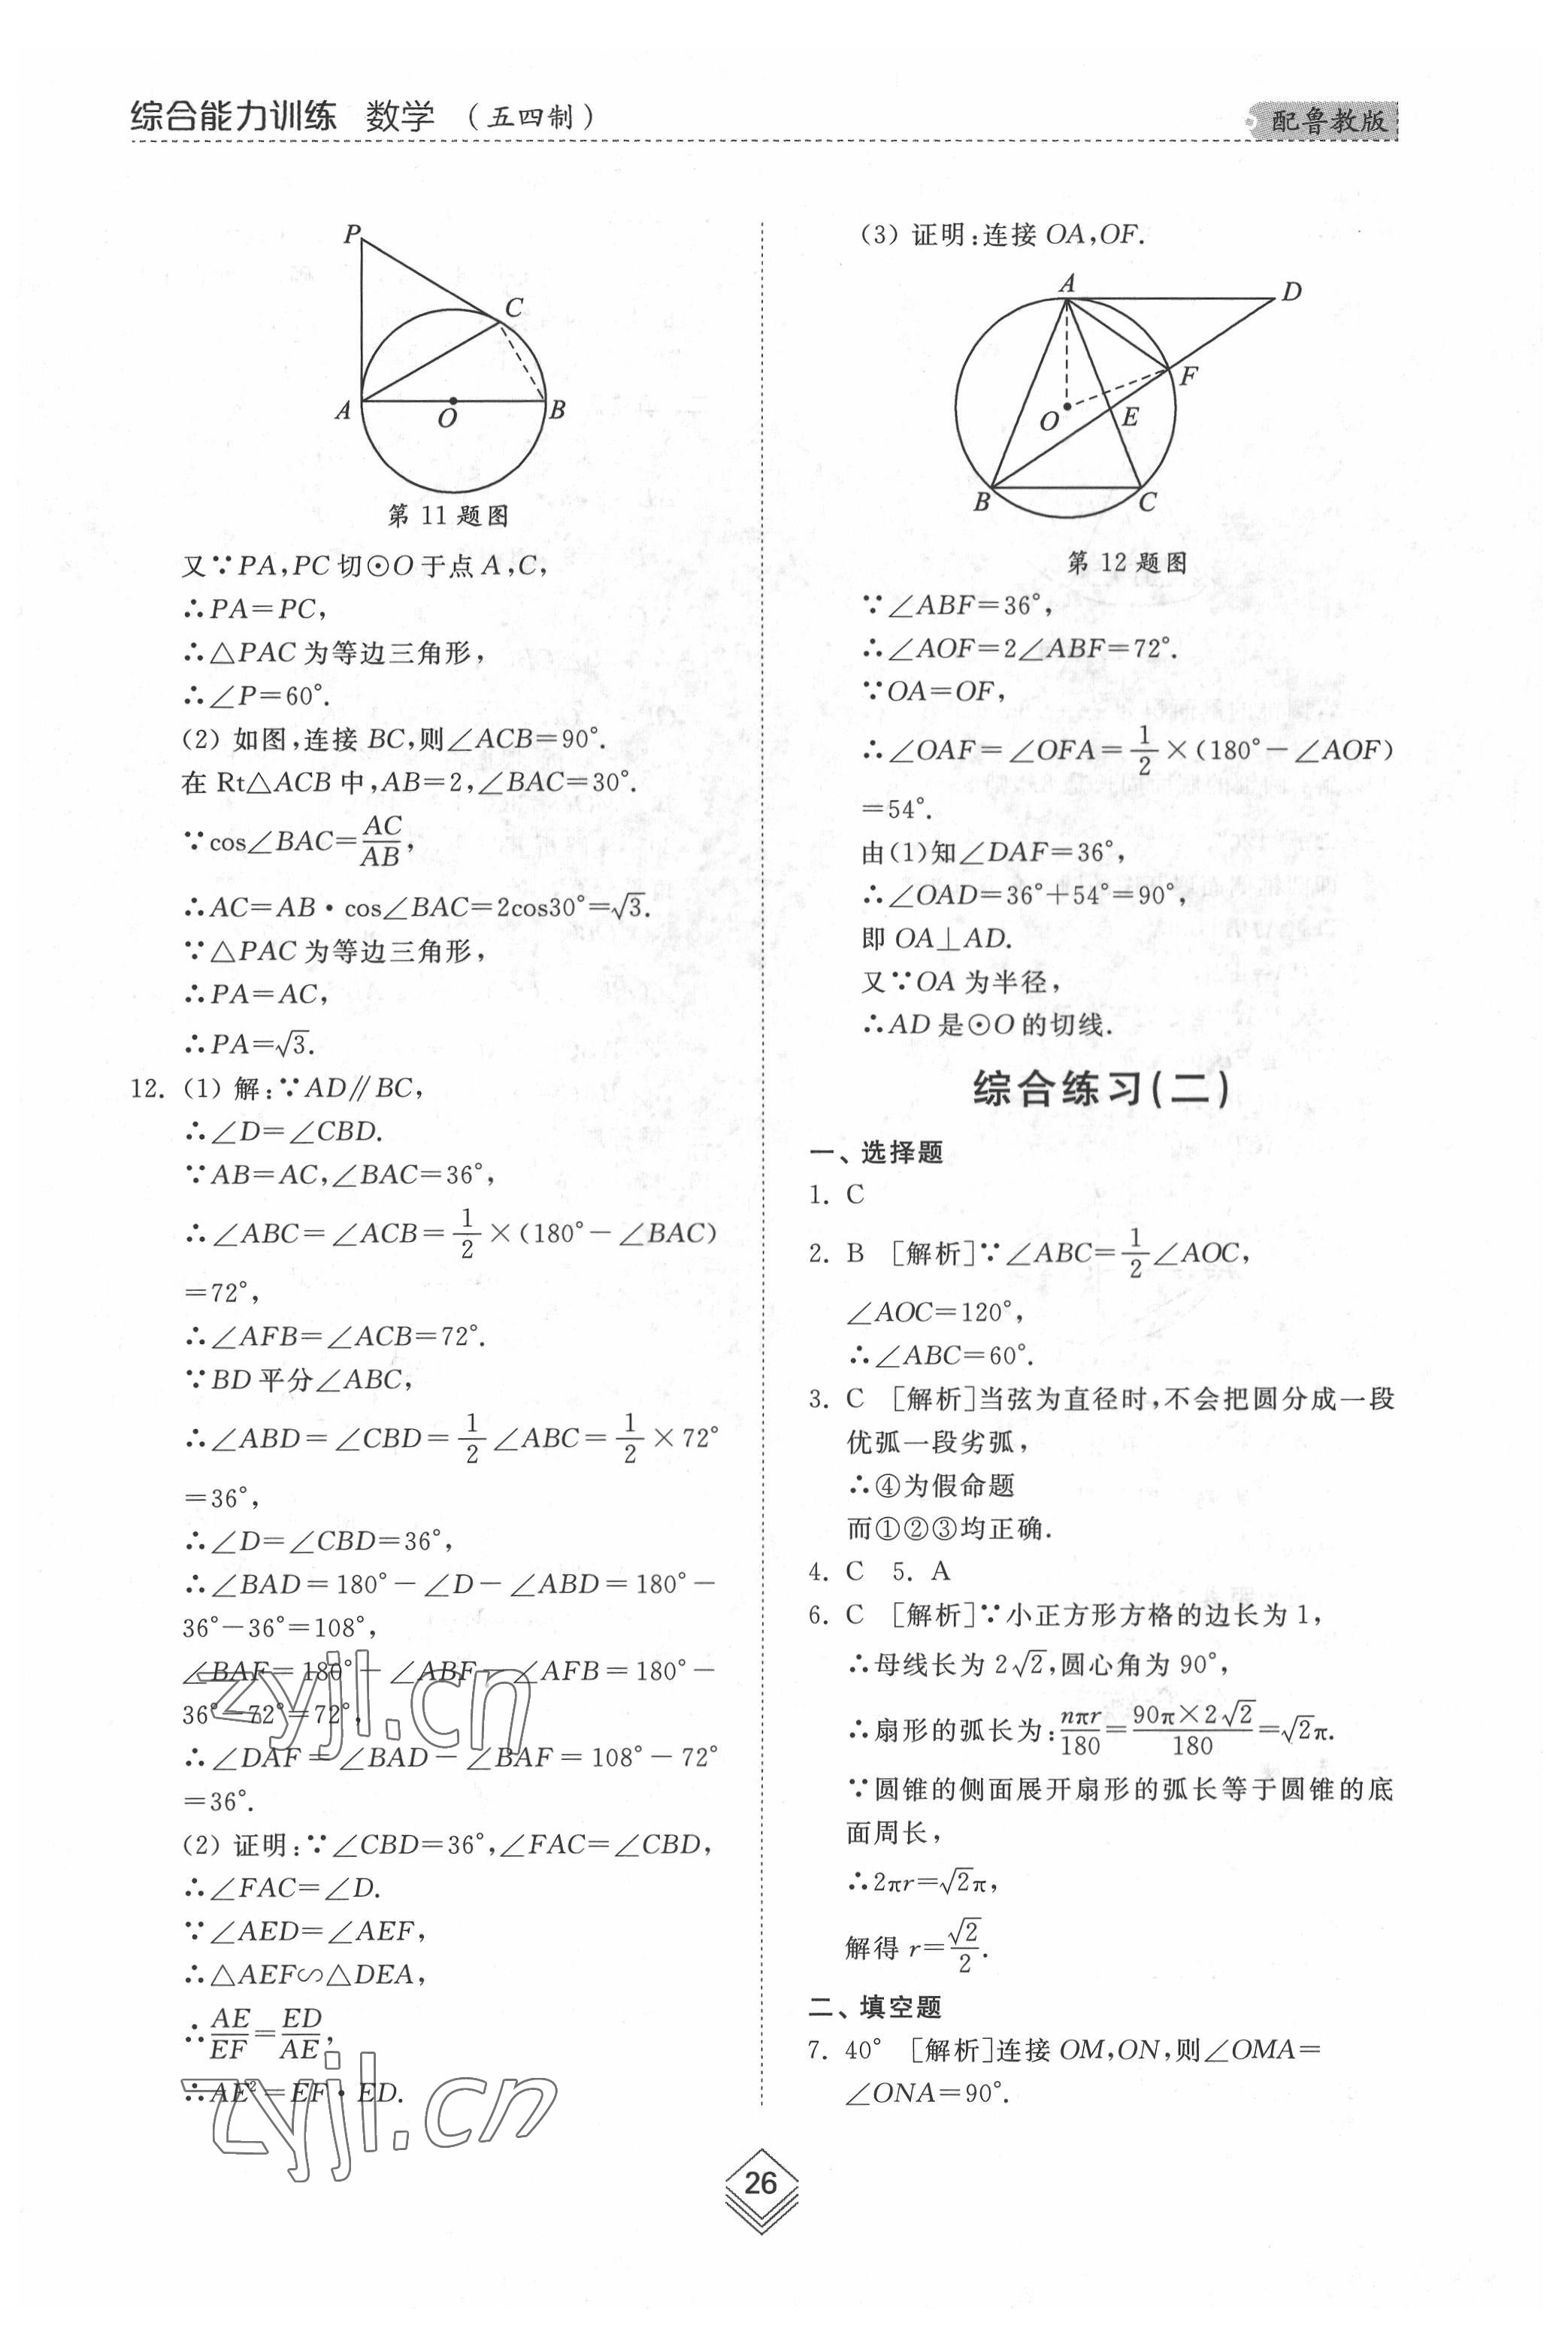 综合能力训练 数学 (五四制)
配鲁教版
P
C
A
O
B
第 11 题图
又∵PA,PC 切⊙O 于点 A,C,
∴PA=PC,
∴△PAC 为等边三角形,
∴∠P=60°.
(2) 如图,连接 BC,则∠ACB=90°.
在 Rt△ACB 中,AB=2,∠BAC=30°.
∵cos∠BAC=AC/AB,
∴AC=AB·cos∠BAC=2cos30°=√3.
∵△PAC 为等边三角形,
∴PA=AC,
∴PA=√3.
12. (1) 解:∵AD∥BC,
∴∠D=∠CBD.
∵AB=AC,∠BAC=36°,
∴∠ABC=∠ACB=1/2×(180°-∠BAC)
=72°,
∴∠AFB=∠ACB=72°.
∵BD 平分∠ABC,
∴∠ABD=∠CBD=1/2∠ABC=1/2×72°
=36°,
∴∠D=∠CBD=36°,
∴∠BAD=180°-∠D-∠ABD=180°-
36°-36°=108°,
∠BAF=180°-∠ABF-∠AFB=180°-
36°-72°=72°,
∴∠DAF=∠BAD-∠BAF=108°-72°
=36°.
(2) 证明:∵∠CBD=36°,∠FAC=∠CBD,
∴∠FAC=∠D.
∵∠AED=∠AEF,
∴△AEF∽△DEA,
∴AE/EF=ED/AE,
∴AE²=EF·ED.
zyjl.cn
zyjl.cn
(3) 证明:连接 OA,OF.
A
D
F
O
E
B
C
第 12 题图
∵∠ABF=36°,
∴∠AOF=2∠ABF=72°.
∵OA=OF,
∴∠OAF=∠OFA=1/2×(180°-∠AOF)
=54°.
由(1)知∠DAF=36°,
∴∠OAD=36°+54°=90°,
即 OA⊥AD.
又∵OA 为半径,
∴AD 是⊙O 的切线.
综合练习(二)
一、选择题
1. C
2. B [解析]∵∠ABC=1/2∠AOC,
∠AOC=120°,
∴∠ABC=60°.
3. C [解析]当弦为直径时,不会把圆分成一段
优弧一段劣弧,
∴④为假命题
而①②③均正确.
4. C 5. A
6. C [解析]∵小正方形方格的边长为 1,
∴母线长为 2√2,圆心角为 90°,
∴扇形的弧长为:nπr/180=90π×2√2/180=√2π.
∵圆锥的侧面展开扇形的弧长等于圆锥的底
面周长,
∴2πr=√2π,
解得 r=√2/2.
二、填空题
7. 40° [解析]连接 OM,ON,则∠OMA=
∠ONA=90°.
26